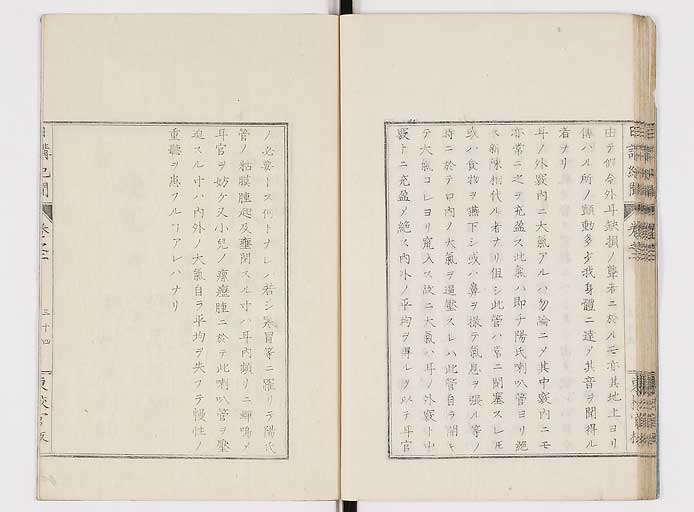 由テ假令外耳缺損ノ聾者ニ於ルモ亦其地上ヨリ
傳ハル所ノ顫動多少我身體ニ達〆其音ヲ聞得ル
者ナリ
耳ノ外竅内ニ大氣アルハ勿論ニ〆其中竅内ニモ
亦常ニ之ヲ充盈ス此氣ハ即チ陽氏喇叭管ヨリ絶
ス新陳相代ル者ナリ但シ此管ハ常ニ閉塞スレ𪜈
或ハ食物ヲ嚥下シ或ハ鼻ヲ搾テ氣息ヲ張ル等ノ
時ニ於テ口内ノ大氣ヲ逼壓スレハ此管自ラ開キ
テ大氣コレヨリ竄入ス故ニ大氣ハ耳ノ外竅ト中
竅トニ充盈〆絶ス内外ノ平均ヲ得ルヲ以テ耳官
ノ必要トス何トナレハ若シ寒冒等ニ罹リテ陽氏
管ノ粘膜腫起及壅閉スル寸ハ耳内頻リニ鳴〆
耳官ヲ妨ケ又小兒ノ瘰癧腫ニ於テ此喇叭管ヲ壓
迫スル寸ハ内外ノ大氣自ラ平均ヲ失フテ慢性ノ
重聽ヲ患フルヿアレハナリ
日講記聞
卷之二
三十四